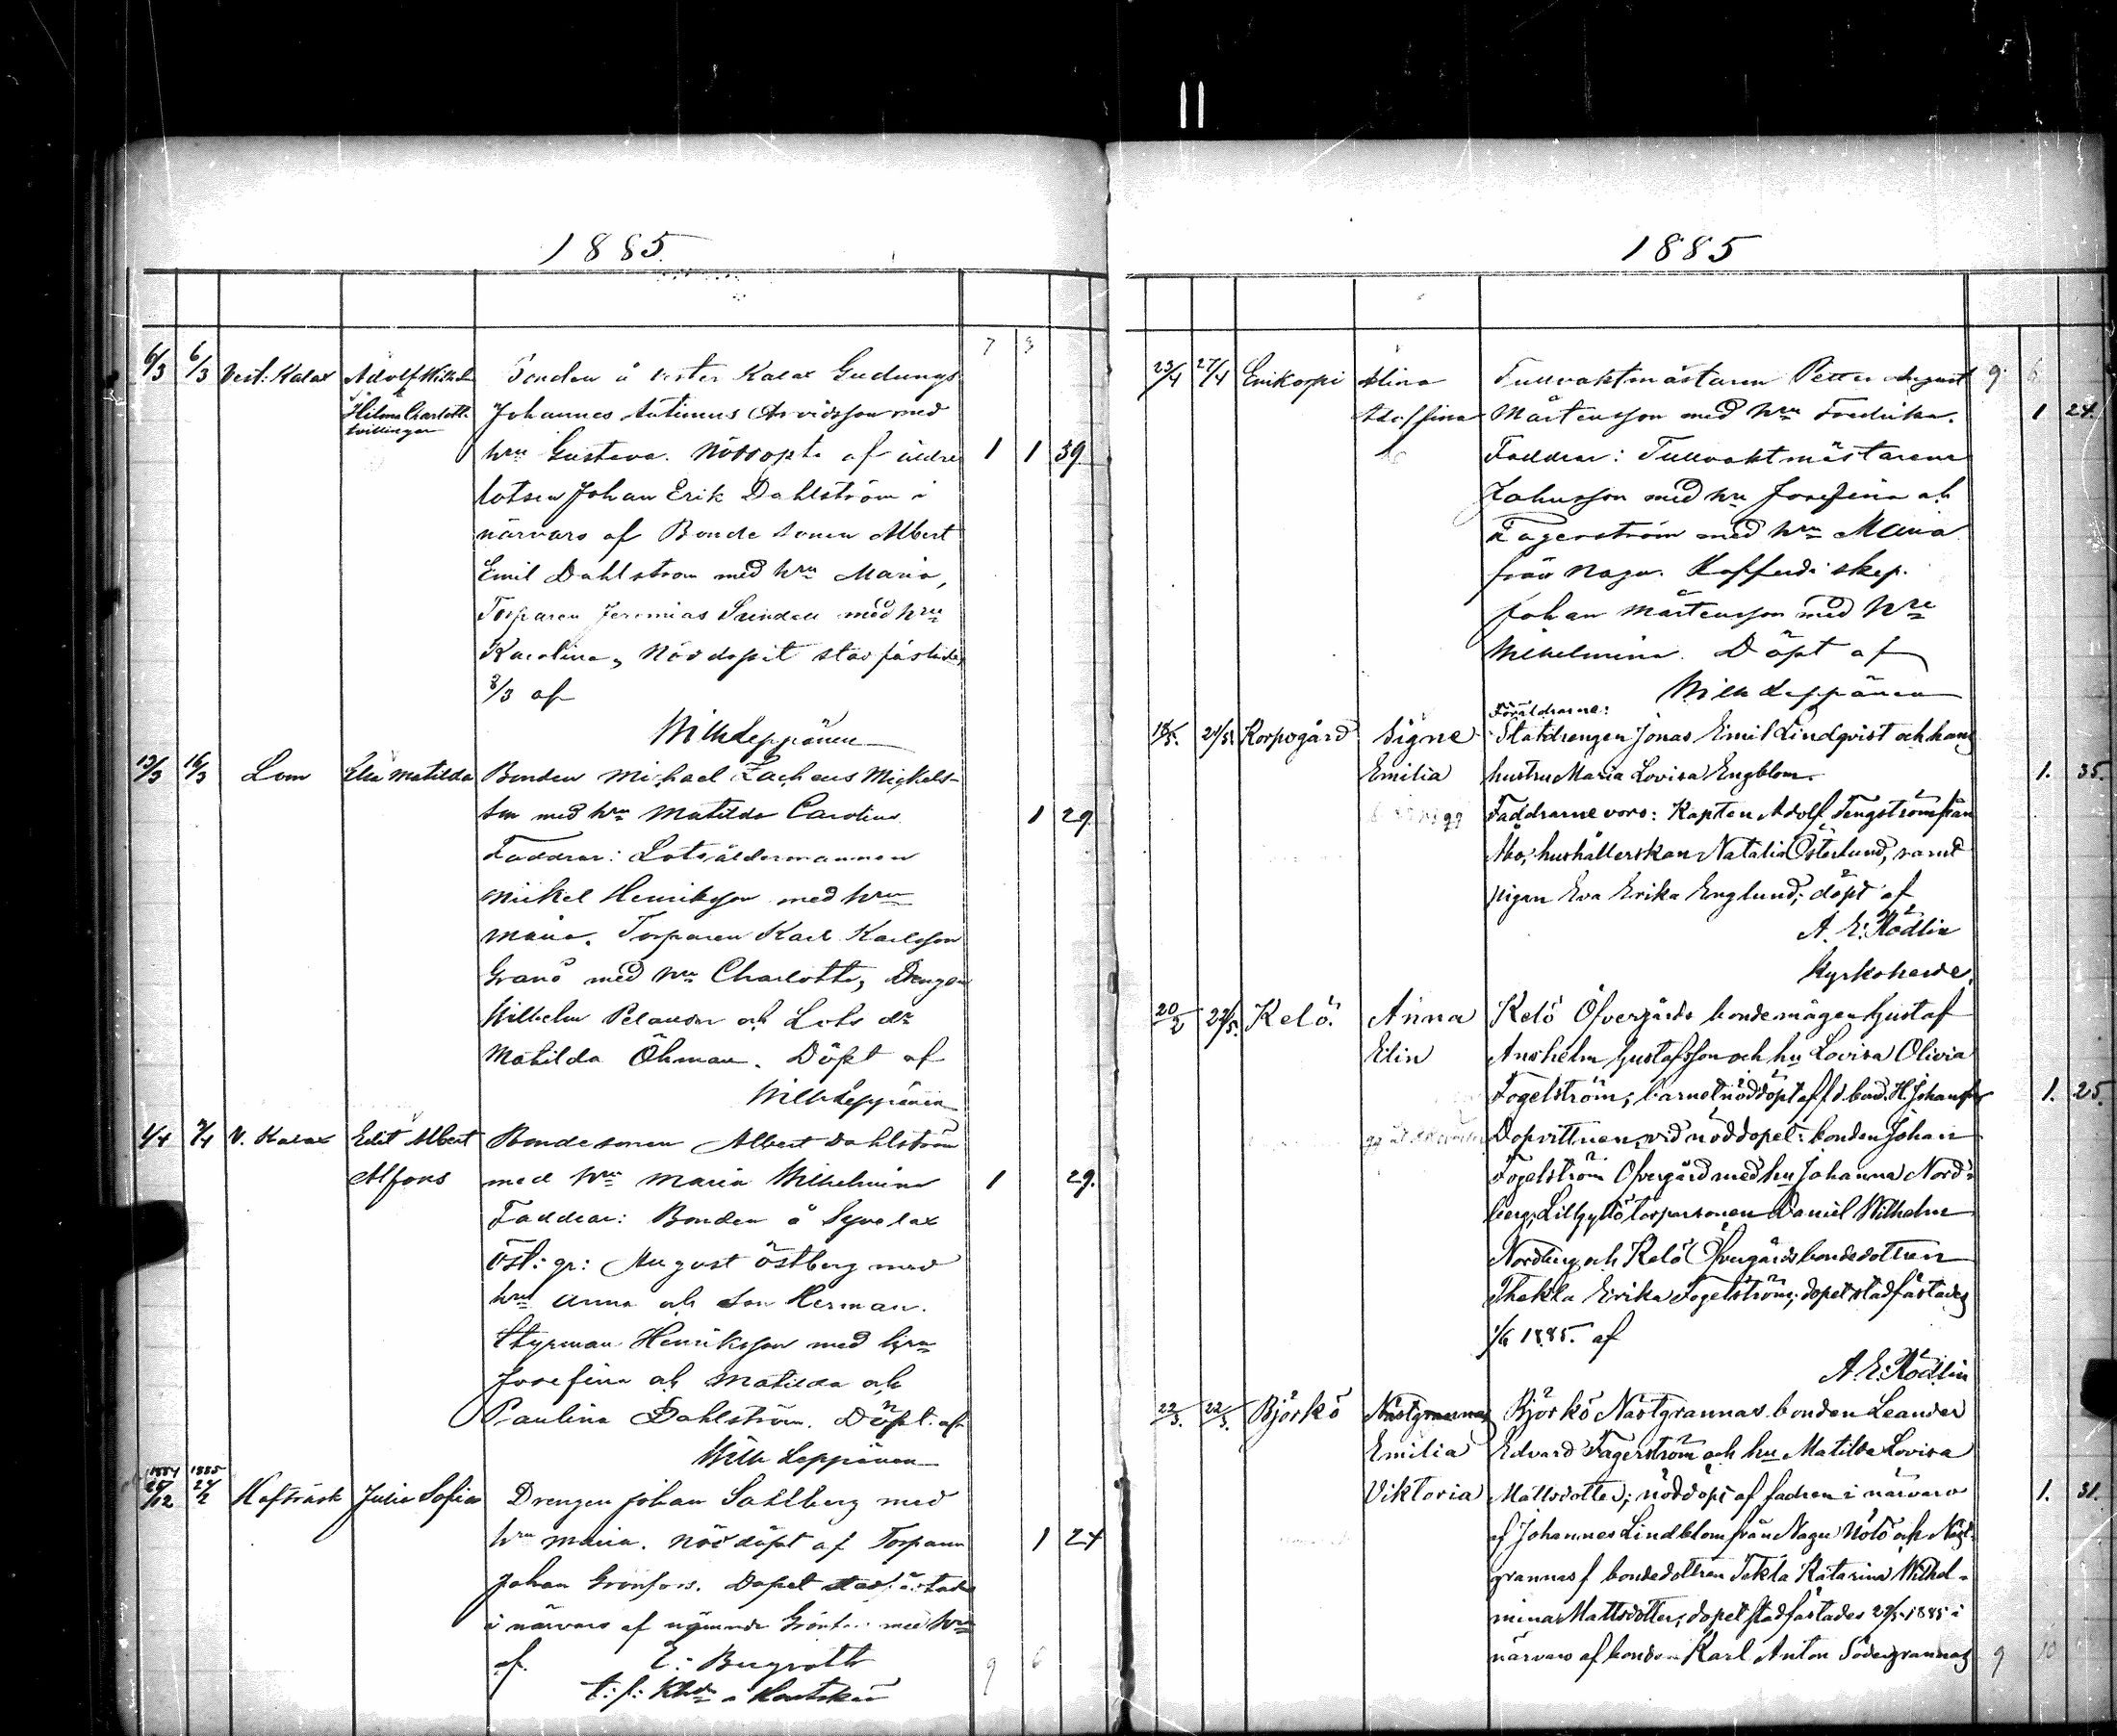 1885.
7 3
6/3 6/3 Vest: Kalax Adolf Wilhelm Bonden å Vester Kalax Gudungs
Hilma Charlott. Johannes Antinus Arvidsson med
tvillingar
hru Gustava. Nöddöpta af äldre 1 1 39
lotsen Johan Erik Dahlström i
närvaro af Bonde sonen Albert
Emil Dahlström med hru Maria,
Torparen Jeremias Sundell med hru
Karolina, Nöddopet stadfästades
8/3 af
Wilh Leppänen
13/3 16/3 Lom Elin Matilda Bonden Michael Zacheus Mickels-
son med hru Matilda Carolina 1 29.
Faddrar: Lotsåldermannen
Mickel Henriksson med hru
Maria. Torparen Karl Karlsson
Granö med hru Charlotta, Drengen
Wilhelm Pelanson och Lots dr
Matilda Öhman. Döpt af
Wilh Leppänen
1/4 2/4 V. Kalax Edit Albert Bondesonen Albert Dahlström
Alfons med hru Maria Wilhelmina 1 29.
Faddrar: Bonden å
Öst: gr: August Östberg med
hru Anna och son Herman.
Styrman Henriksson med hru
Josefina och Matilda och
Paulina Dahlström. Döpt af
Wilh Leppänen
1884 1885
/12 24/2 Hafträsk Julia Sofia Drengen Johan Sahlberg med
hru Maria. Nöddöpt af Torparen 1 24
Johan Grönfors. Dopet stadfästades
i närvaro af nämnde med hru
af. E. Bergroth
t: f: Khde i Houtskär
9 6
1885
23/4 27/4 Enikorpi Alina Tullvaktmästaren Petter August 9 6
Adolffina Mårtensson med hru Fredrika. 1 24.
Faddrar: Tullvaktmästarene
Johnsson med hru Josefina och
Fagerström med hru Maria
från Nagu. Kofferdi skep.
Johan Mårtensson med hru
Wilhelmina. Döpt af
Wilh Leppänen
Föräldrarne:
18/5. 21/5. Korpogård Signe Statdrengen Jonas Emil Lindqvist och hans
Emilia hustru Maria Lovisa Engblom. 1. 35.
Faddrarne voro: Kapten Adolf Tengström från
Åbo, hushållerskan Natalia Österlund, samt
pigan Eva Erika Englund; döpt af
A. E. Rödlin
Kyrkoherde.
20/2 22/5. Kelö. Anna Kelö Öfvergårds bondemågen Gustaf
Elin Anshelm Gustafsson och hu Lovisa Olivia
Fogelström; barnet nöddöpt af f d bond. H. Johansson 1. 25.
Dopvittnen vid nöddopet: bonden Johan
Fogelström Öfvergård med hu Johanna Nord-
berg, Lillgyltö torparsonen Daniel Wilhelm
Nordberg och Kelö Öfvergårds bondedottren
Thekla Erika Fogelström; dopet stadfästades
1/6 1885. af
A. E. Rödlin
22/3. 22/3. Björkö Nästgrannas Björkö Nästgrannas bonden Leander
Emilia Edvard Fagerström och hu Matilda Lovisa
Viktoria Mattsdotter; nöddöpt af fadren i närvaro 1. 31.
af Johannes Lindblom från Nagu Nötö och Näst-
grannas f bondedottren Tekla Katarina Wilhel-
mina Mattsdotter, dopet stadfästades 29/5 1885 i
närvaro af bonden Karl Anton Södergrannas 9 10